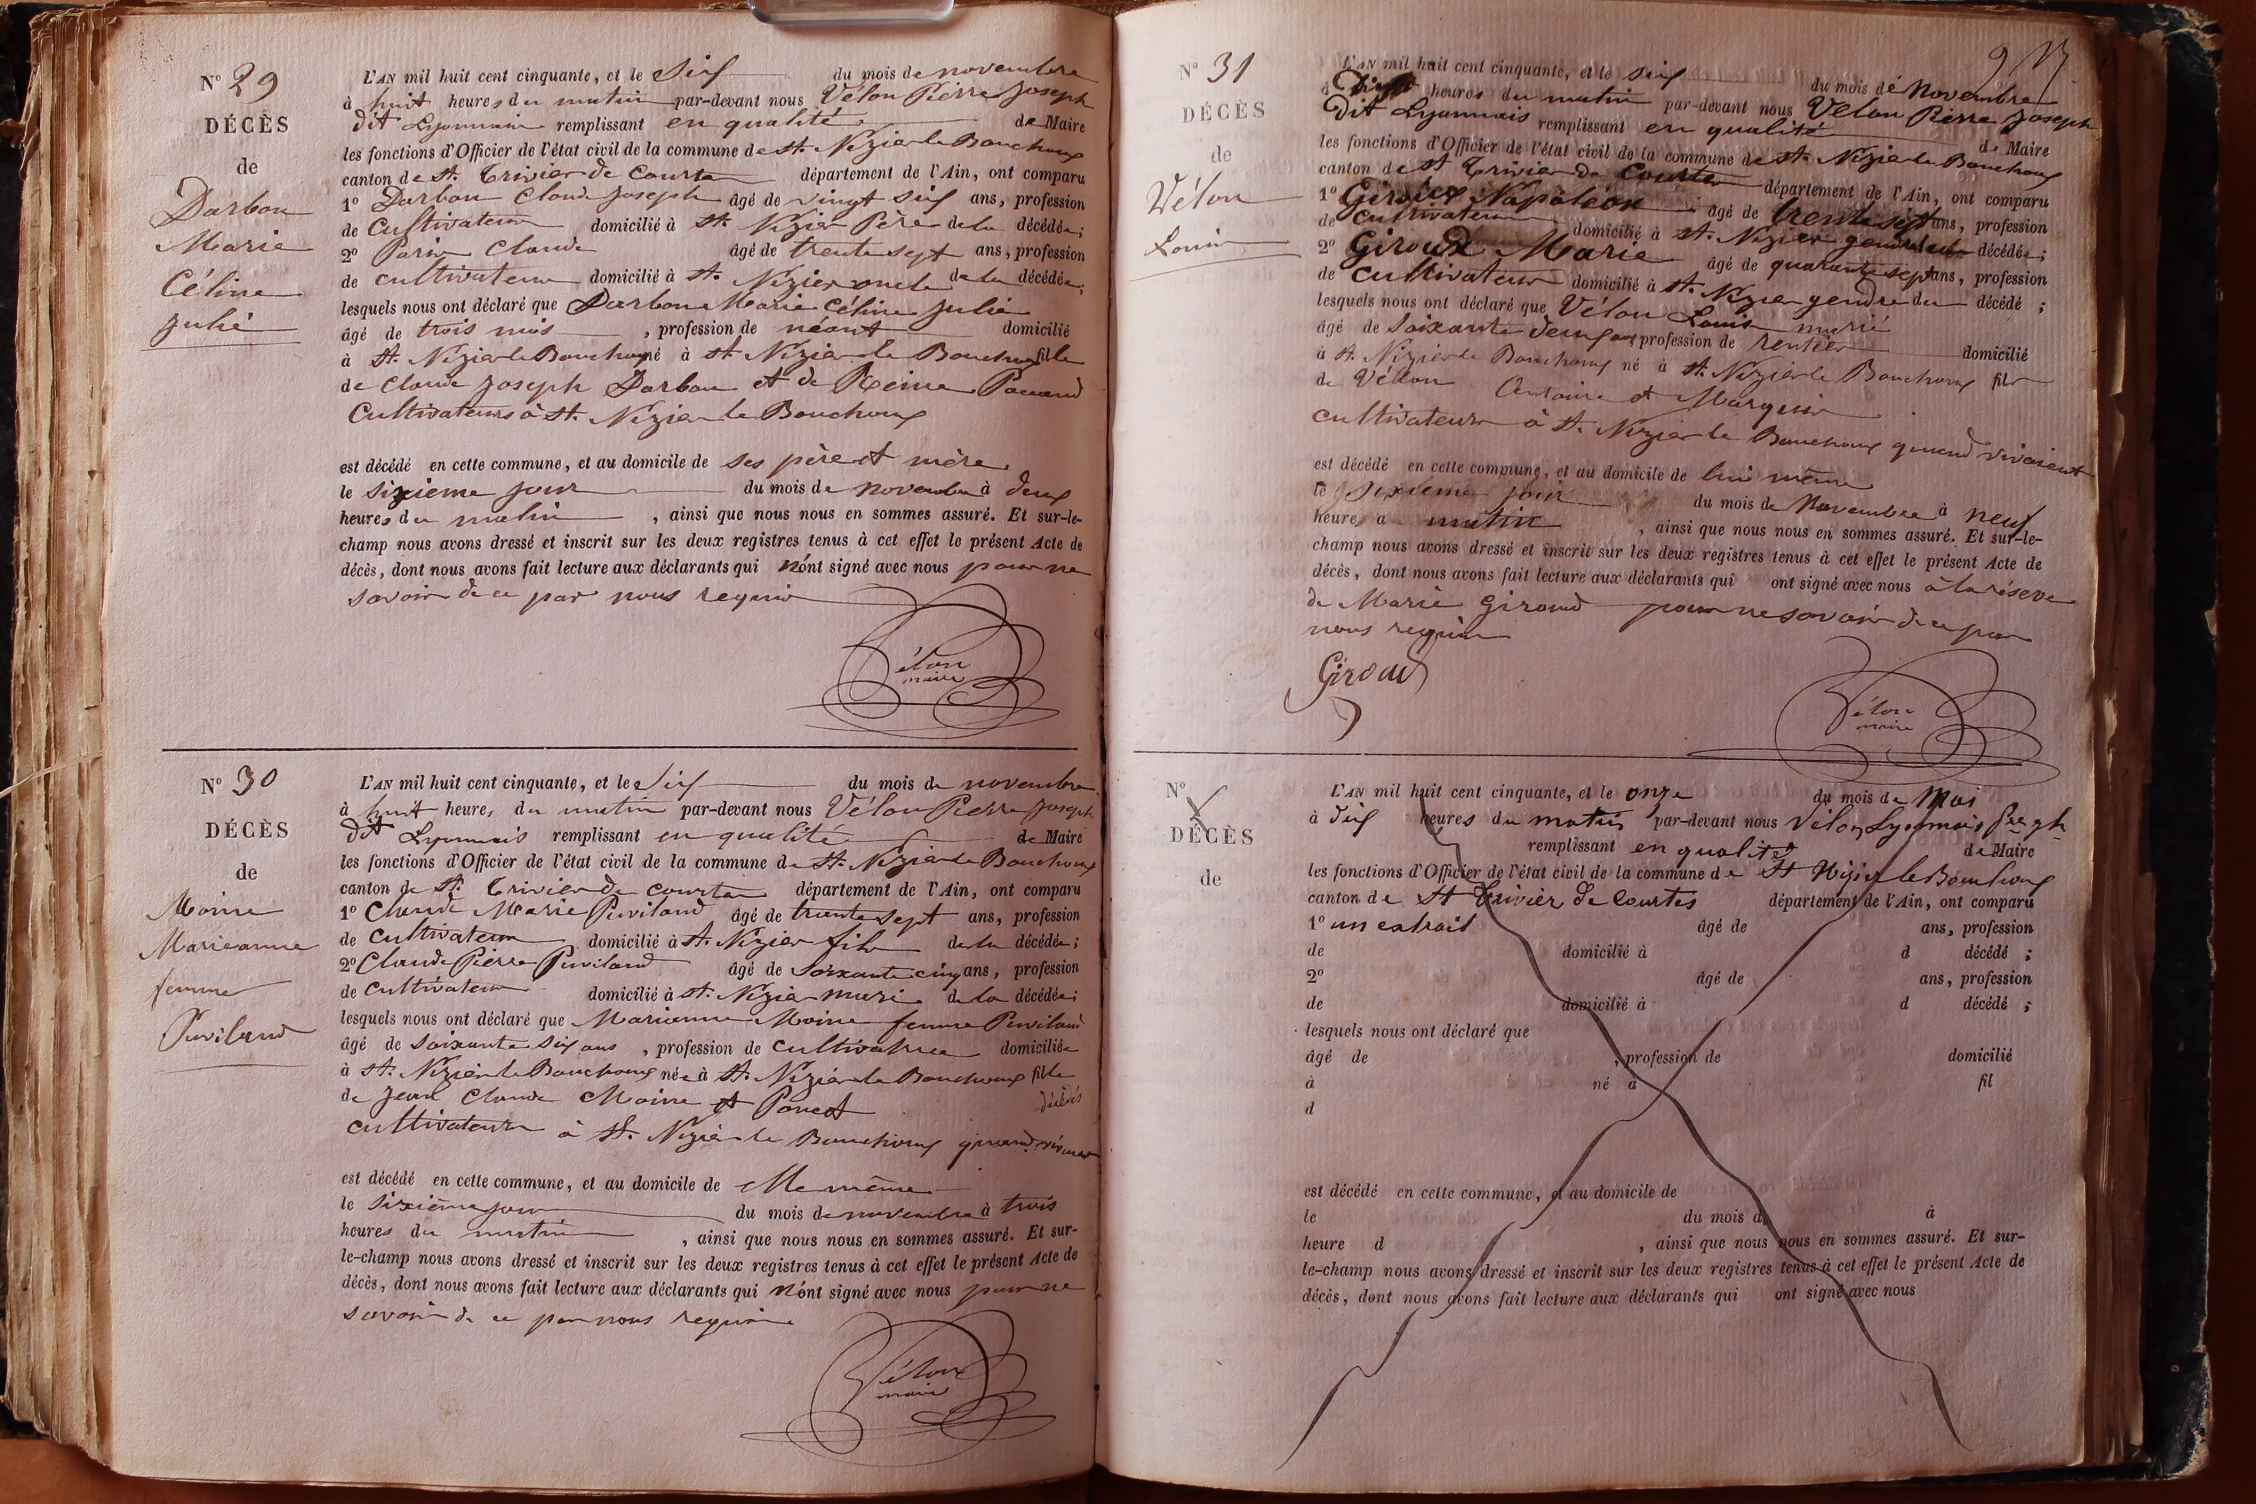 N° 29
DÉCÈS
de
Darbon
Marie
Céline
Julie
L'AN mil huit cent cinquante, et le six du mois de novembre
à huit heures du matin par-devant nous Vélon Pierre Joseph
dit Lyonnais remplissant en qualité de Maire
les fonctions d'Officier de l'état civil de la commune de St. Nizier le Bouchoux
canton de St. Trivier de Courtes département de l'Ain, ont comparu
1° Darbon Claude Joseph âgé de vingt six ans, profession
de Cultivateur domicilié à St. Nizier Père de la décédée;
2° Paris Claude âgé de trente sept ans, profession
de cultivateur domicilié à St. Nizier oncle de la décédée,
lesquels nous ont déclaré que Darbon Marie Céline Julie
âgé de trois mois, profession de néant domicilié
à St. Nizier le Bouchoux né à St Nizier le Bouchoux fille
de Claude Joseph Darbon et de Reine
Cultivateurs à St. Nizier le Bouchoux
est décédé en cette commune, et au domicile de ses père et mère
le sixième jour du mois de novembre à deux
heures du matin, ainsi que nous nous en sommes assuré. Et sur-le-
champ nous avons dressé et inscrit sur les deux registres tenus à cet effet le présent Acte de
décès, dont nous avons fait lecture aux déclarants qui n'ont signé avec nous pour ne
savoir de ce par nous requis
Vélon
maire
N° 30
DÉCÈS
de
Moine
Marieanne
femme
Puvilland
L'AN mil huit cent cinquante, et le six du mois de novembre
à huit heures du matin par-devant nous Vélon Pierre Joseph
dit Lyonnais remplissant en qualité de Maire
les fonctions d'Officier de l'état civil de la commune de St. Nizier le Bouchoux
canton de St. Trivier de Courtes département de l'Ain, ont comparu
1° Claude Marie Puviland âgé de trente sept ans, profession
de cultivateur domicilié à St. Nizier fils de la décédée;
2° Claude Pierre Puviland âgé de soixante cinq ans, profession
de cultivateur domicilié à St. Nizier mari de la décédée;
lesquels nous ont déclaré que Marianne Moine femme Puviland
âgé de soixante six ans, profession de cultivatrice domiciliée
à St. Nizier le Bouchoux née à St. Nizier le Bouchoux fille
de Jean Claude Moine et Poncet décédés
cultivateurs à St. Nizier le Bouchoux quand vivaient
est décédé en cette commune, et au domicile de elle même
le sixième jour du mois de novembre à trois
heures du matin, ainsi que nous nous en sommes assuré. Et sur-
le-champ nous avons dressé et inscrit sur les deux registres tenus à cet effet le présent Acte de
décès, dont nous avons fait lecture aux déclarants qui n'ont signé avec nous pour ne
savoir de ce par nous requis
Vélon
maire
N° 31
DÉCÈS
de
Vélon
Louis
L'AN mil huit cent cinquante, et le six du mois de Novembre
à heures du matin par-devant nous Vélon Pierre Joseph
dit Lyonnais remplissant en qualité de Maire
les fonctions d'Officier de l'état civil de la commune de St. Nizier le Bouchoux
canton de St Trivier de Courtes département de l'Ain, ont comparu
1° Giroux Napoléon âgé de trente sept ans, profession
de cultivateur domicilié à St. Nizier gendre du décédée;
2° Giroux Marie âgé de quarante sept ans, profession
de cultivateur domicilié à St. Nizier gendre du décédé;
lesquels nous ont déclaré que Vélon Louis marié
âgé de soixante deux ans, profession de rentier domicilié
à St. Nizier le Bouchoux né à St. Nizier le Bouchoux fils
de Vélon Antoine et Marguin
cultivateurs à St. Nizier le Bouchoux quand vivaient
est décédé en cette commune, et au domicile de lui même
le sixieme jour du mois de Novembre à neuf
heures d matin, ainsi que nous nous en sommes assuré. Et sur-le-
champ nous avons dressé et inscrit sur les deux registres tenus à cet effet le présent Acte de
décès, dont nous avons fait lecture aux déclarants qui ont signé avec nous à la réserve
de Marie Giroud pour ne savoir de ce par
nous requis
Giroud
Vélon
maire
N°
DÉCÈS
de
L'AN mil huit cent cinquante, et le onze du mois de Mai
à dix heures du matin par-devant nous Vélon Lyonnais
remplissant en qualité de Maire
les fonctions d'Officier de l'état civil de la commune de St Nizier le Bouchoux
canton de St Trivier de Courtes département de l'Ain, ont comparu
1° un extrait âgé de ans, profession
de domicilié à d décédé;
2° âgé de ans, profession
de domicilié à d décédé;
lesquels nous ont déclaré que
âgé de, profession de domicilié
à né à fil
d
est décédé en cette commune, et au domicile de
le du mois d à
heure d, ainsi que nous nous en sommes assuré. Et sur-
le-champ nous avons dressé et inscrit sur les deux registres tenus à cet effet le présent Acte de
décès, dont nous avons fait lecture aux déclarants qui ont signé avec nous